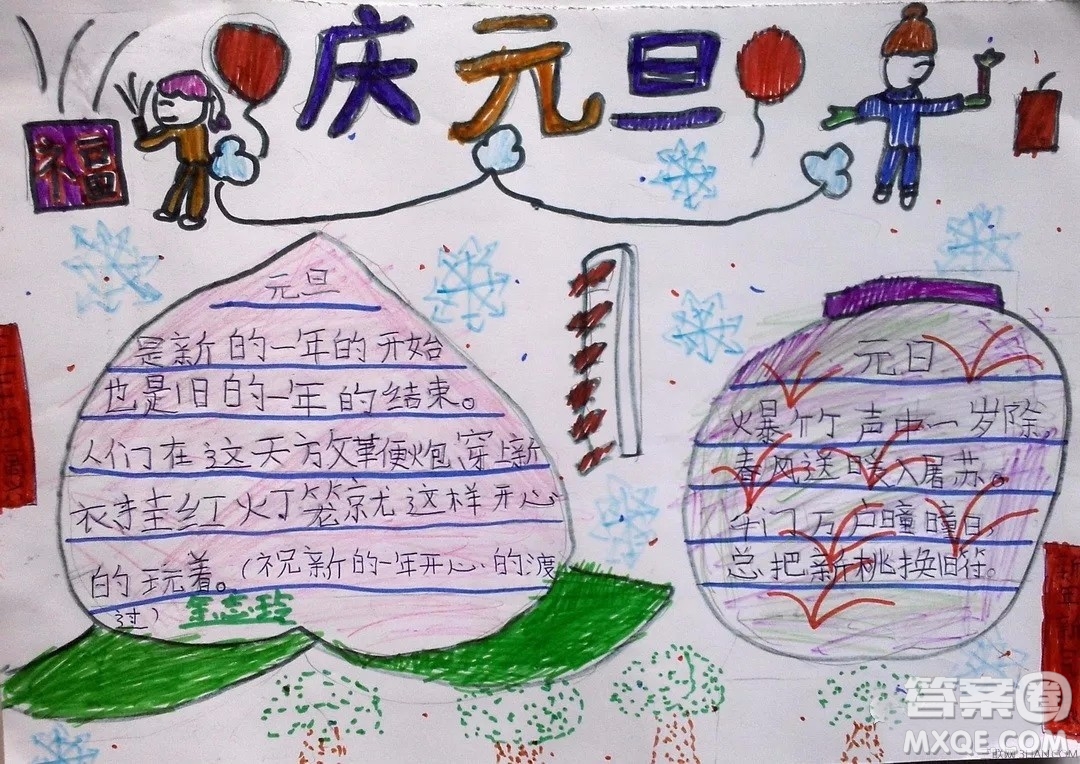 庆元旦
福
元旦
是新的一年的开始
也是旧的一年的结束。
人们在这天方放革便炮穿上新
衣挂红灯笼就这样开心
的玩着。(祝新的一年开心的渡
过)
元日
爆竹声中一岁除,
春风送暖入屠苏。
千门万户瞳瞳日,
总把新桃换旧符。
答案圈
MXQE.COM